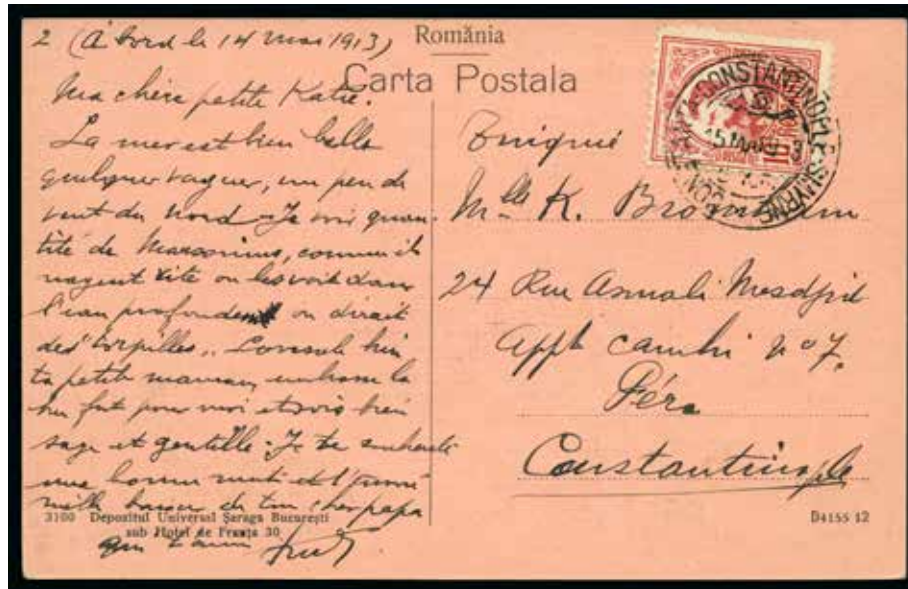 2 (À bord le 14 mai 1913)
România
Carta Postala
Ma chère petite Katie.
La mer est bien belle
quelques vagues, un peu de
vent du nord - Je vois quan-
tité de Marsouins, comme ils
nagent vite on les voit dans
l'eau profonde on dirait
des torpilles. Console bien
ta petite maman, embrasse la
bien fort pour moi et sois bien
sage et gentille. Je te souhaite
une bonne nuit et t'
mille baisers de ton cher papa
qui t'aime
CONSTANTINOPLE-SMYRNE
15 MAI 913
10
Turquie
Mlle K.
24 Rue Asmali Mesdjid
Appt no 7.
Péra
Constantinople
3100 Depozitul Universal Șaraga București
sub Hotel de Franța 30
D4155 12